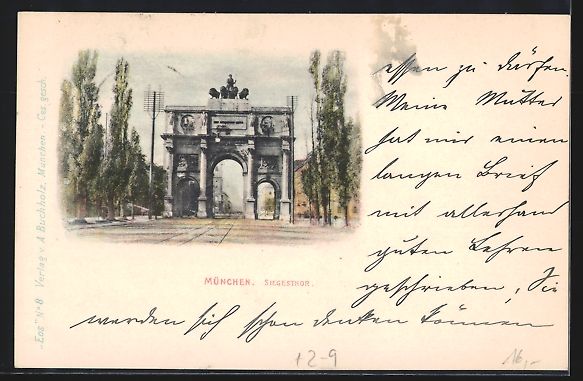 essen zu dürfen.
Meine Mutter
hat mir einen
langen Brief
mit allerhand
guten Lehren
geschrieben, Sie
werden sich schon denken können
MÜNCHEN. SIEGESTHOR.
„Eos" No 8 Verlag v. A. Buchholz, München – Ges. gesch.
+2-9
16,-